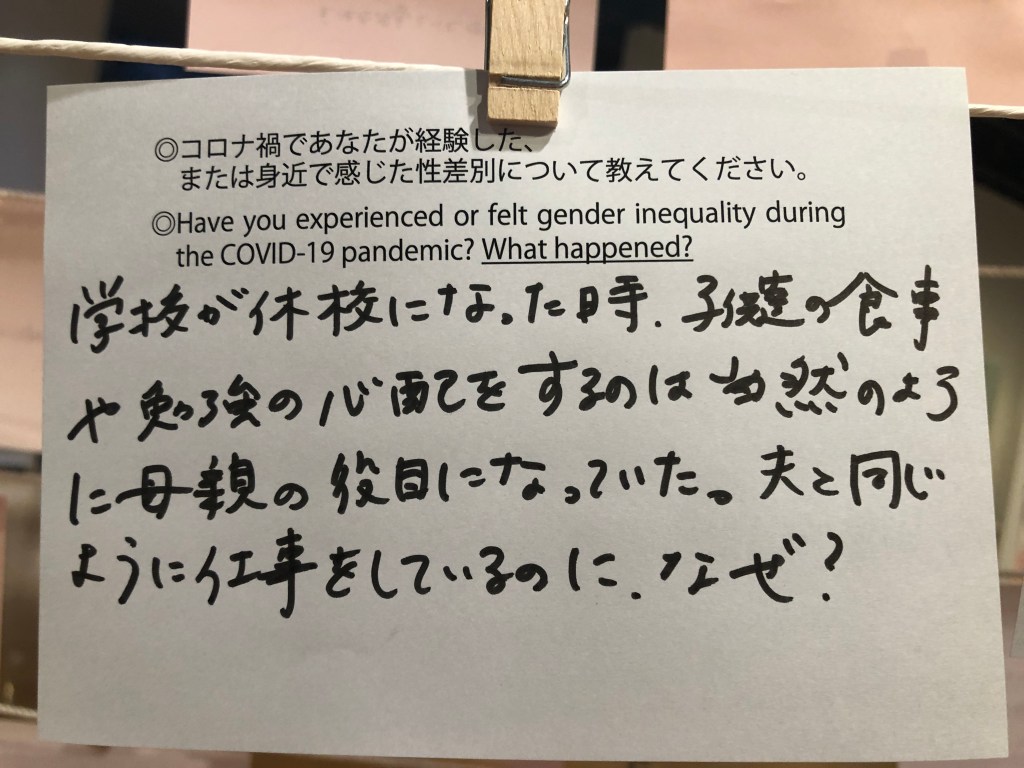 ◎コロナ禍であなたが経験した、
または身近で感じた性差別について教えてください。
◎Have you experienced or felt gender inequality during
the COVID-19 pandemic? What happened?
学校が休校になった時、子供達の食事
や勉強の心配をするのは当然のよう
に母親の役目になっていた。夫と同じ
ように仕事をしているのに、なぜ?